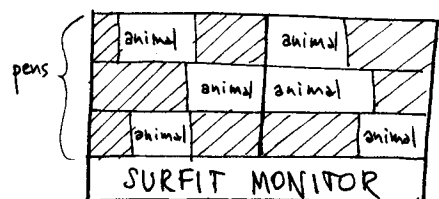 animal animal
pens animal animal
animal animal
SURFIT MONITOR